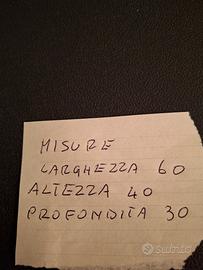 MISURE
LARGHEZZA 60
ALTEZZA 40
PROFONDITA 30
subito